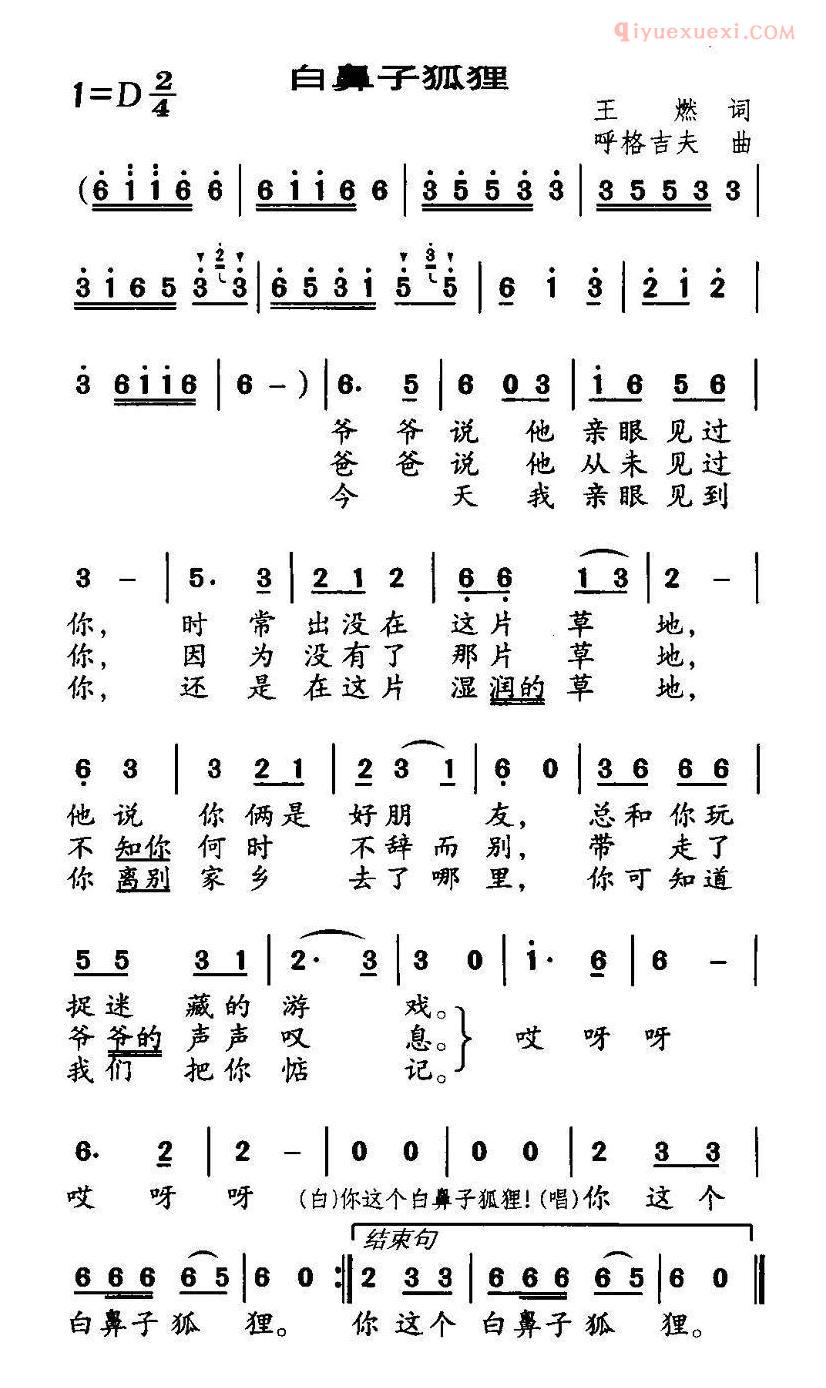 qiyuexuexi.com
白鼻子狐狸
1=D 2/4
王 燃 词
呼格吉夫 曲
(6 1 1 6 6 | 6 1 1 6 6 | 3 5 5 3 3 | 3 5 5 3 3 |
3 1 6 5 3 2 3 | 6 5 3 1 5 3 5 | 6 1 3 | 2 1 2 |
3 6 1 1 6 | 6 - ) | 6. 5 | 6 0 3 | 1 6 5 6 |
爷 爷 说 他 亲 眼 见 过
爸 爸 说 他 从 未 见 过
今 天 我 亲 眼 见 到
3 - | 5. 3 | 2 1 2 | 6 6 1 3 | 2 - |
你, 时 常 出 没 在 这 片 草 地,
你, 因 为 没 有 了 那 片 草 地,
你, 还 是 在 这 片 湿 润的 草 地,
6 3 | 3 2 1 | 2 3 1 | 6 0 | 3 6 6 6 |
他 说 你 俩 是 好 朋 友, 总 和 你 玩
不 知你 何 时 不 辞 而 别, 带 走 了
你 离别 家 乡 去 了 哪 里, 你 可 知 道
5 5 3 1 | 2· 3 | 3 0 | 1· 6 | 6 - |
捉 迷 藏 的 游 戏。
爷 爷的 声 声 叹 息。} 哎 呀 呀
我 们 把 你 惦 记。
6. 2 | 2 - | 0 0 | 0 0 | 2 3 3 |
哎 呀 呀 (白)你这个白鼻子狐狸!(唱)你 这 个
结束句
6 6 6 6 5 | 6 0 :‖ 2 3 3 | 6 6 6 6 5 | 6 0 ‖
白 鼻 子 狐 狸。 你 这 个 白 鼻 子 狐 狸。